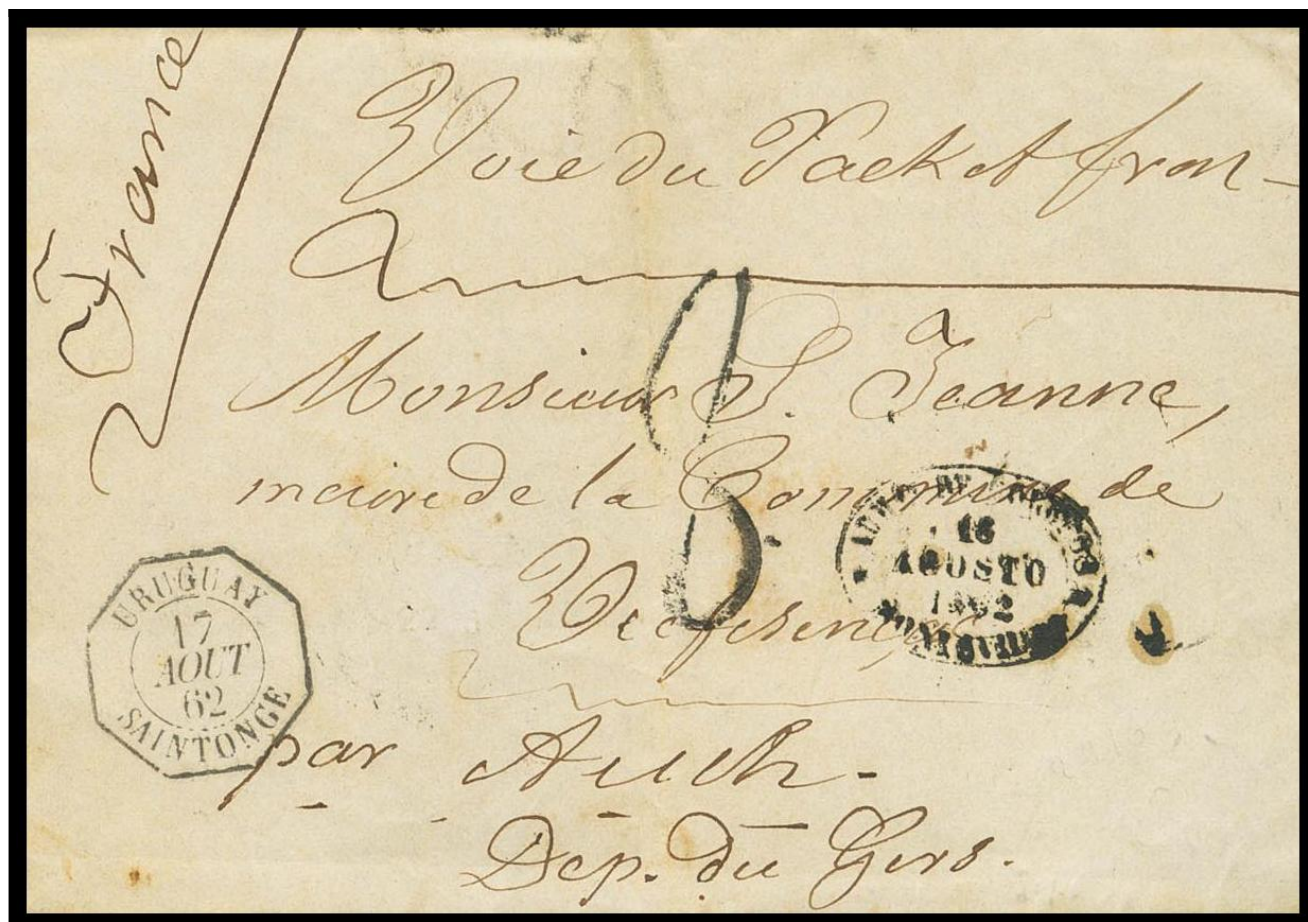 France
Voie du Packet fran-
Monsieur J. Jeanne,
maire de la Commune de
par Auch.
Dép. du Gers.
8
URUGUAY
17
AOUT
62
SAINTONGE
16
AGOSTO
1862